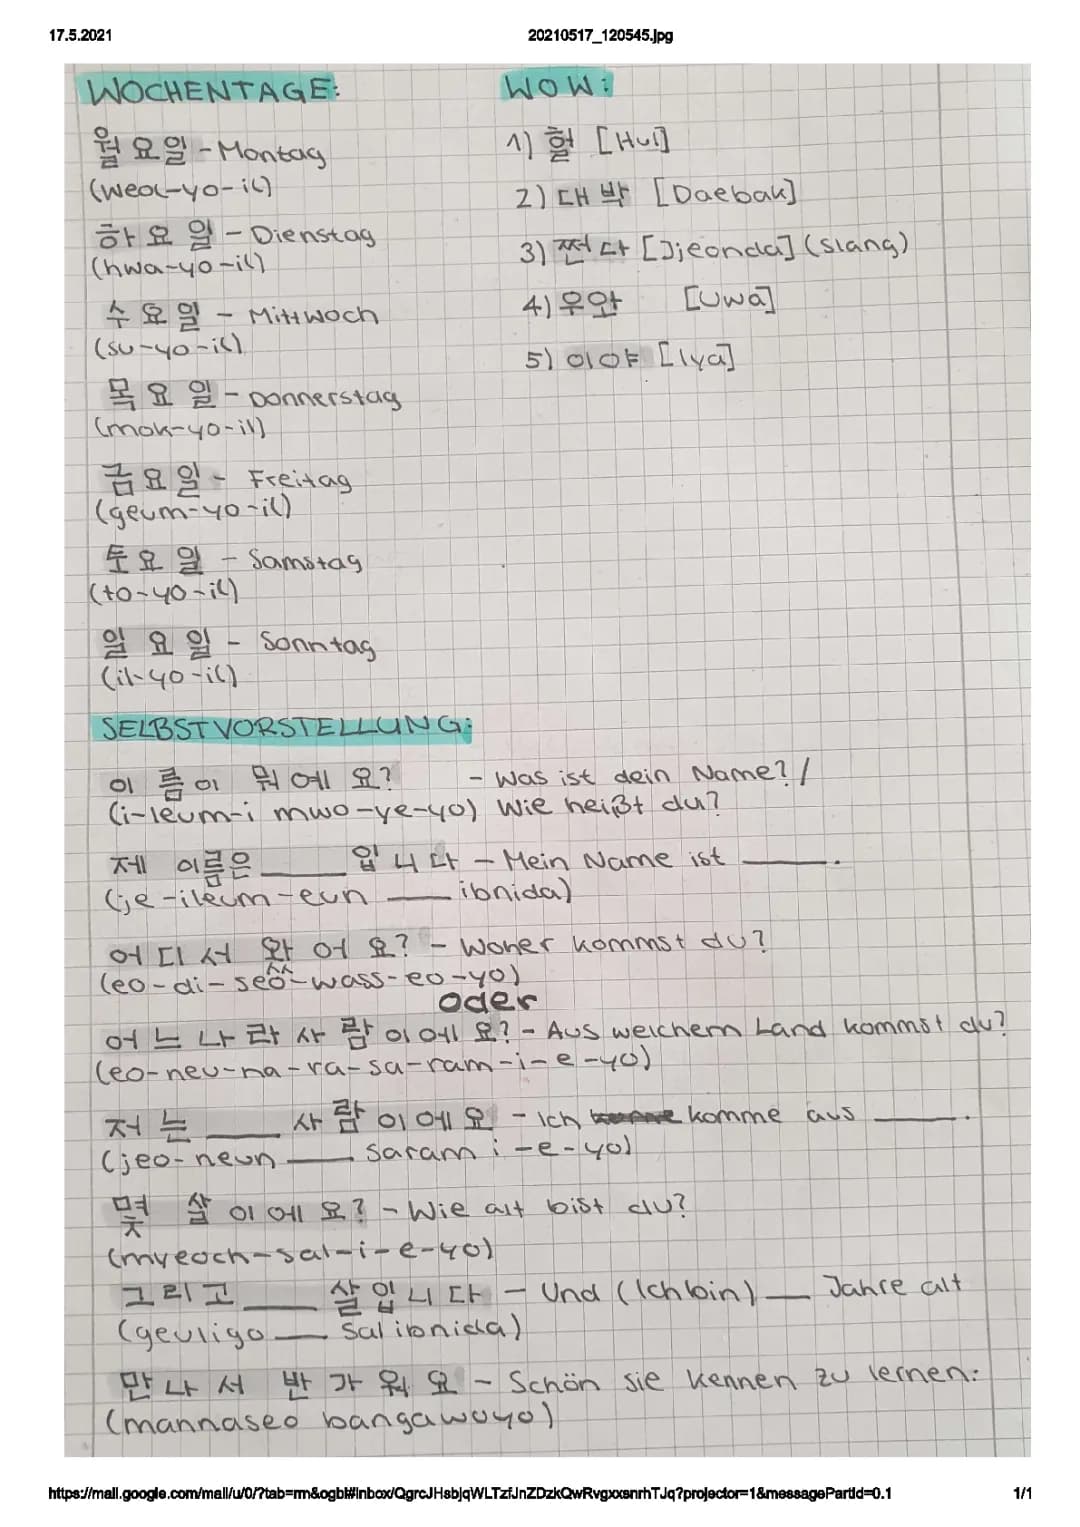 17.5.2021
20210517_120545.jpg
WOCHENTAGE:
월요일 - Montag
(weol-yo-il)
하요일 - Dienstag
(hwa-yo-il)
수요일 - Mittwoch
(su-yo-il)
목요일 - Donnerstag
(mok-yo-il)
금요일 - Freitag
(geum-yo-il)
토요일 - Samstag
(to-yo-il)
일요일 - Sonntag
(il-yo-il)
WOW:
1) 헐 [Hul]
2) 대박 [Daebak]
3) 쩐다 [Djeonda] (slang)
4) 우와 [Uwa]
5) 이야 [Iya]
SELBSTVORSTELLUNG:
이름이 뭐예요? - Was ist dein Name? /
(i-leum-i mwo-ye-yo) Wie heißt du?
제 이름은 ___ 입니다 - Mein Name ist ___.
(je-ileum-eun ___ ibnida)
어디서 왔어요? - Woher kommst du?
(eo-di-seo-wass-eo-yo)
oder
어느나라사람이에요? - Aus welchem Land kommst du?
(eo-neu-na-ra-sa-ram-i-e-yo)
저는 ___ 사람이에요 - Ich komme aus ___.
(jeo-neun ___ saram i-e-yo)
몇 살이에요? - Wie alt bist du?
(myeoch-sal-i-e-yo)
그리고 ___ 살입니다 - Und (Ich bin) ___ Jahre alt
(geuligo ___ salibnida)
만나서 반가워요 - Schön sie kennen zu lernen.
(mannaseo bangawoyo)
https://mail.google.com/mail/u/0/?tab=rm&ogbl#inbox/QgrcJHsbjqWLTzfJnZDzkQwRvgxxsnrhTJq?projector=1&messagePartId=0.1
1/1